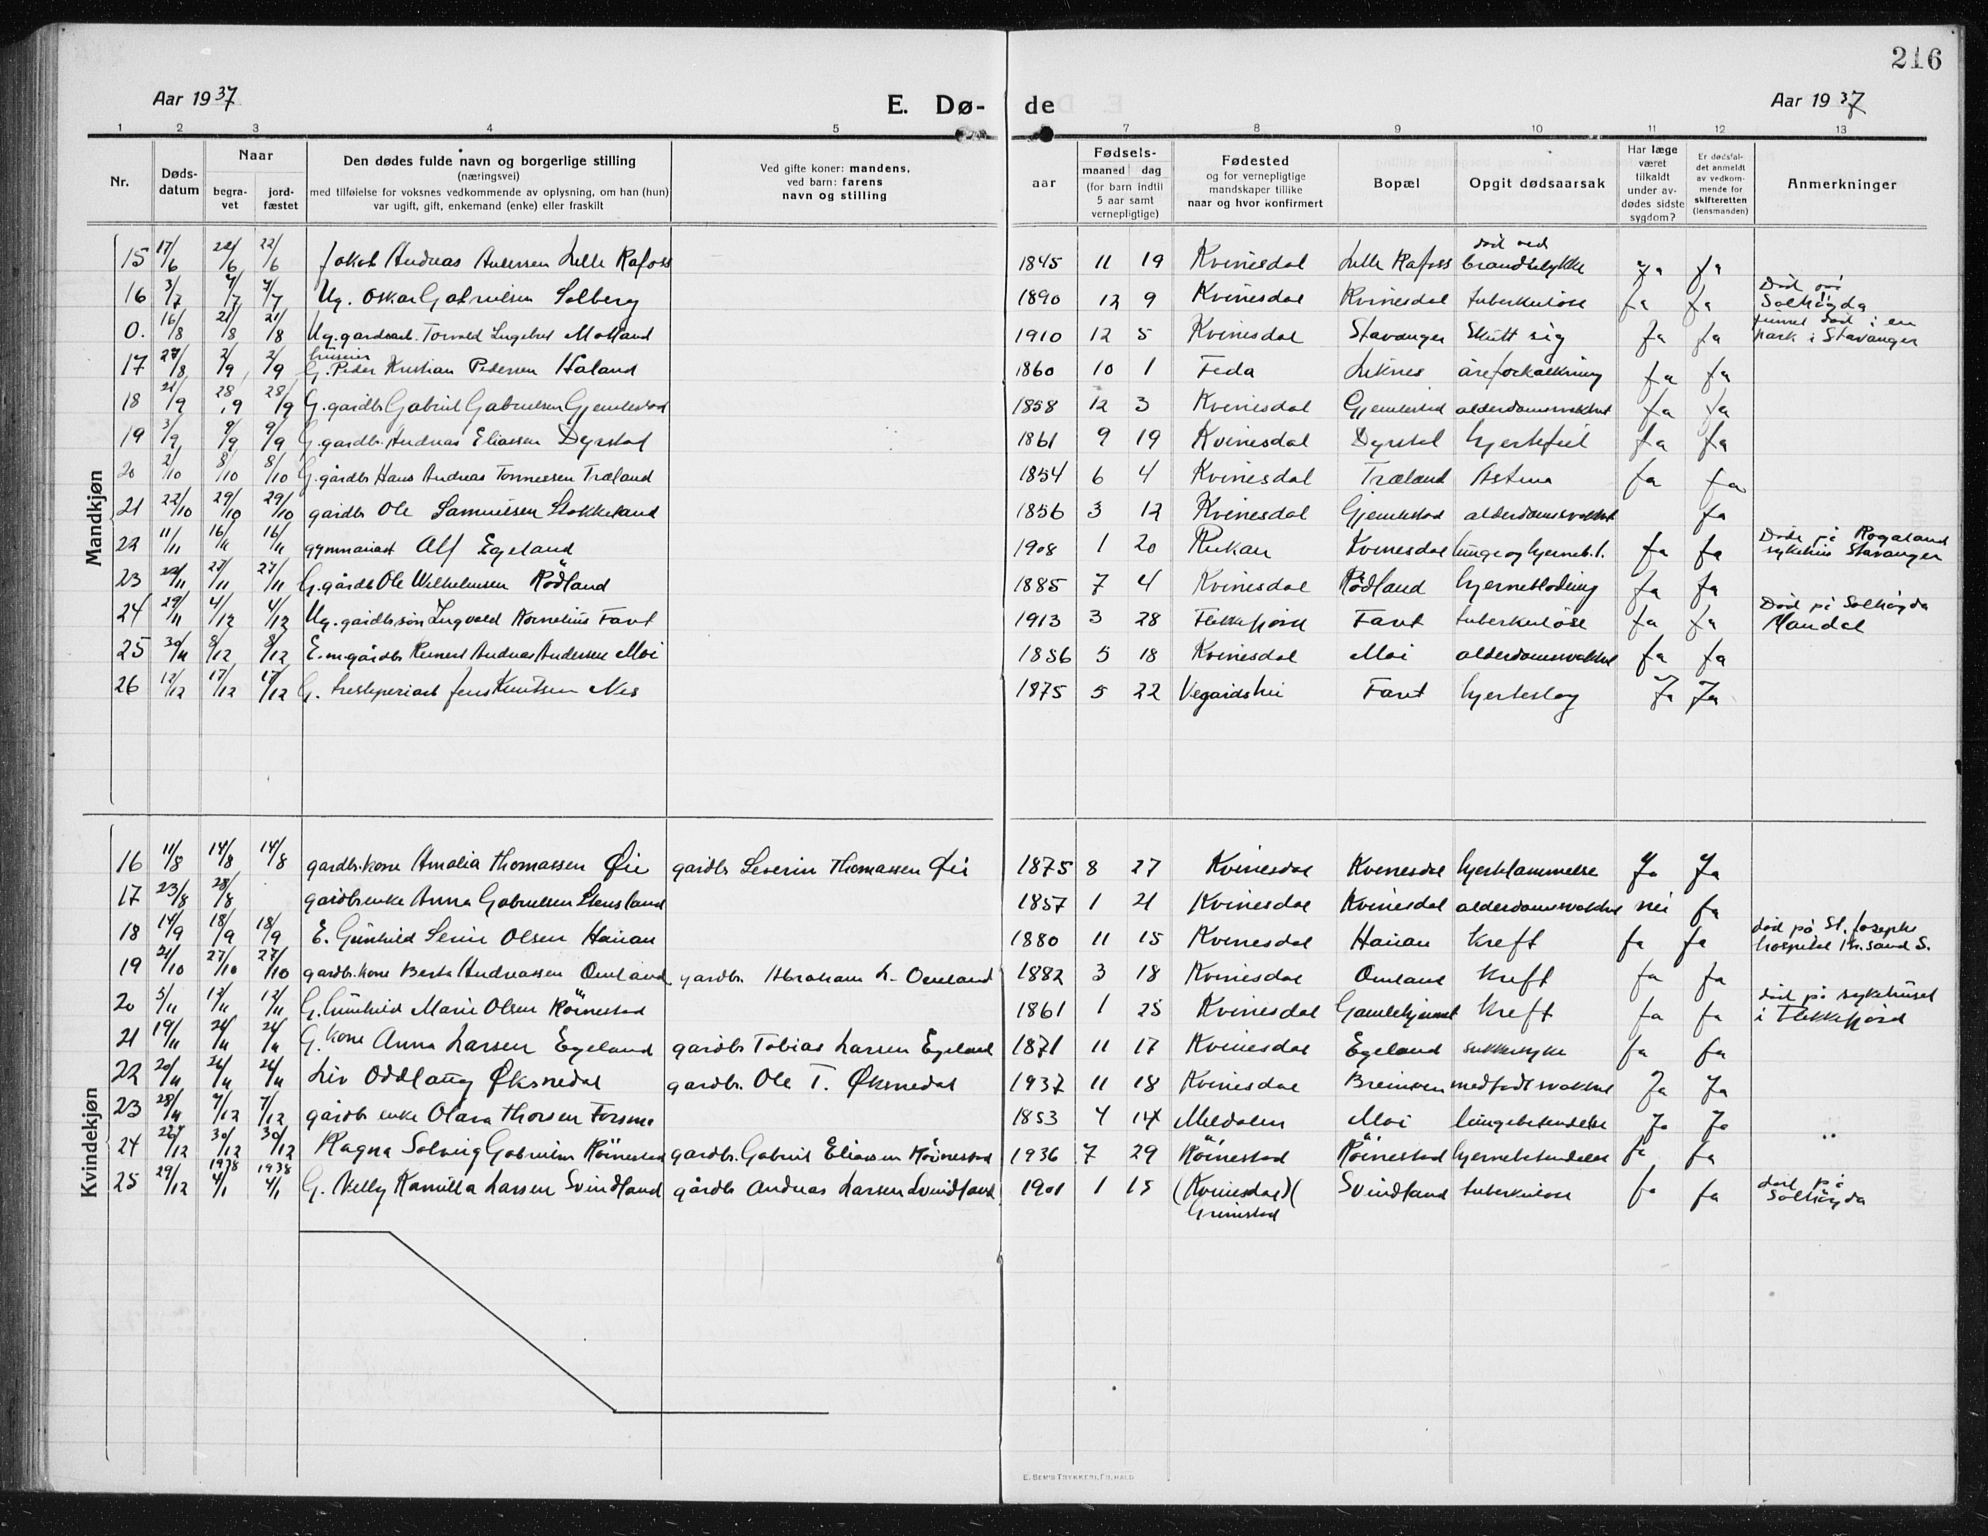 216
Aar 1937
E. Dø- de
Aar 1937
1 2 3 4 5 7 8 9 10 11 12 13
Nr. Døds-datum Naar begra-vet jord-fæstet Den dødes fulde navn og borgerlige stilling (næringsvei) med tilføielse for voksnes vedkommende av oplysning, om han (hun) var ugift, gift, enkemand (enke) eller fraskilt Ved gifte koner: mandens, ved barn: farens navn og stilling aar Fødsels- maaned dag (for barn indtil 5 aar samt vernepligtige) Fødested og for vernepligtige mandskaper tillike naar og hvor konfirmert Bopæl Opgit dødsaarsak Har læge været tilkaldt under av-dødes sidste sygdom? Er dødsfal-det anmeldt av vedkom-mende for skifteretten (lensmanden) Anmerkninger
Mandkjøn
15 17/6 22/6 22/6 Jakob Andreas Andersen Lille Rafoss 1845 11 19 Kvinesdal Lille Rafoss død ved brandulykke ja ja
16 3/7 7/7 7/7 Ug. Oskar Gabrielsen Solberg 1890 12 9 Kvinesdal Kvinesdal tuberkuløse ja ja Død på Solhögda
0. 16/8 21/8 21/8 Ug. gardsarb. Torvald Ingebret Moland 1910 12 5 Kvinesdal Stavanger Skutt sig ja ja funnet død i en park i Stavanger
17 27/8 2/9 2/9 G. Peder Kristian Pedersen Håland 1860 10 1 Feda Liknes åreforkalkning ja ja
18 21/9 28/9 28/9 G. gardbr. Gabriel Gabrielsen Gjemlestad 1858 12 3 Kvinesdal Gjemlestad alderdomssvakhet ja ja
19 3/9 9/9 9/9 G. gardbr. Andreas Eliassen Dyrstad 1861 9 19 Kvinesdal Dyrstad hjertefeil ja ja
20 2/10 8/10 8/10 G. gårdbr Hans Andreas Tønnessen Træland 1854 6 4 Kvinesdal Træland Astma ja ja
21 22/10 29/10 29/10 gardbr Ole Samuelsen Stokkeland 1856 3 12 Kvinesdal Gjemlestad alderdomssvakhet ja
22 11/11 16/11 16/11 gymnasiast Alf Egeland 1908 1 20 Rukan Kvinesdal lunge og hjerneb.t. ja ja Døde på Rogaland sykehus Stavanger
23 22/11 27/11 27/11 G. gårdb Ole Wilhelmsen Rödland 1885 7 4 Kvinesdal Rödland hjerneblødning ja ja
24 29/11 4/12 4/12 Ug. gardbr.søn Ingvald Kornelius Faret 1913 3 28 Flekkefjord Faret tuberkuløse ja ja Død på Solhögda Mandal
25 30/11 8/12 8/12 E.m. gårdbr Reinert Andreas Andersen Moi 1856 5 18 Kvinesdal Moi alderdomssvakhet ja ja
26 12/12 17/12 17/12 G. Jens Knutsen Nes 1875 5 22 Vegårdshei Faret hjerteslag Ja Ja
Kvindekjøn
16 11/8 14/8 14/8 gardbr.kone Amalia Thomassen Øie gardbr Severin Thomassen Øie 1875 8 27 Kvinesdal Kvinesdal hjertelammelse Ja Ja
17 23/8 28/8 gardbr.enke Anna Gabrielsen Stensland 1857 1 21 Kvinesdal Kvinesdal alderdomssvakhet nei ja
18 14/9 18/9 18/9 E. Gunhild Serine Olsen Hauan 1880 11 15 Kvinesdal Hauan Kreft ja ja død på St. Josephs hospital Kr.sand S.
19 21/10 27/10 27/10 gardbr.kone Berta Andreassen Omland gardbr. Abraham L. Omland 1882 3 18 Kvinesdal Omland Kreft ja ja
20 5/11 12/11 12/11 G. Gunhild Marie Olsen Röinestad 1861 1 25 Kvinesdal Gamlehjemmet Kreft ja ja død på sykehuset i Flekkefjord
21 19/11 24/11 24/11 G. kone Anna Larsen Egeland gardbr Tobias Larsen Egeland 1871 11 17 Kvinesdal Egeland sukkersyke ja ja
22 20/11 26/11 26/11 Liv Oddlaug Øksnedal gardbr. Ole T. Øksnedal 1937 11 18 Kvinesdal medfødt svakhet Ja Ja
23 28/11 7/12 7/12 gårdbr enke Olava Thorsen Forsmo 1853 4 14 Meldalen Moi lungebetendelse Ja Ja
24 22/12 30/12 30/12 Ragna Solveig Gabrielsen Röinestad gardbr. Gabriel Eliassen Röinestad 1936 7 29 Röinestad Röinestad hjernebetendelse ja ja
25 29/12 1938 4/1 1938 4/1 G. Nelly Kamilla Larsen Svindland gårdbr Andreas Larsen Svindland 1901 1 15 (Kvinesdal)( Grimstad Svindland tuberkulose ja ja død på Solhögda
E. SEM'S TRYKKERI, FR.HALD